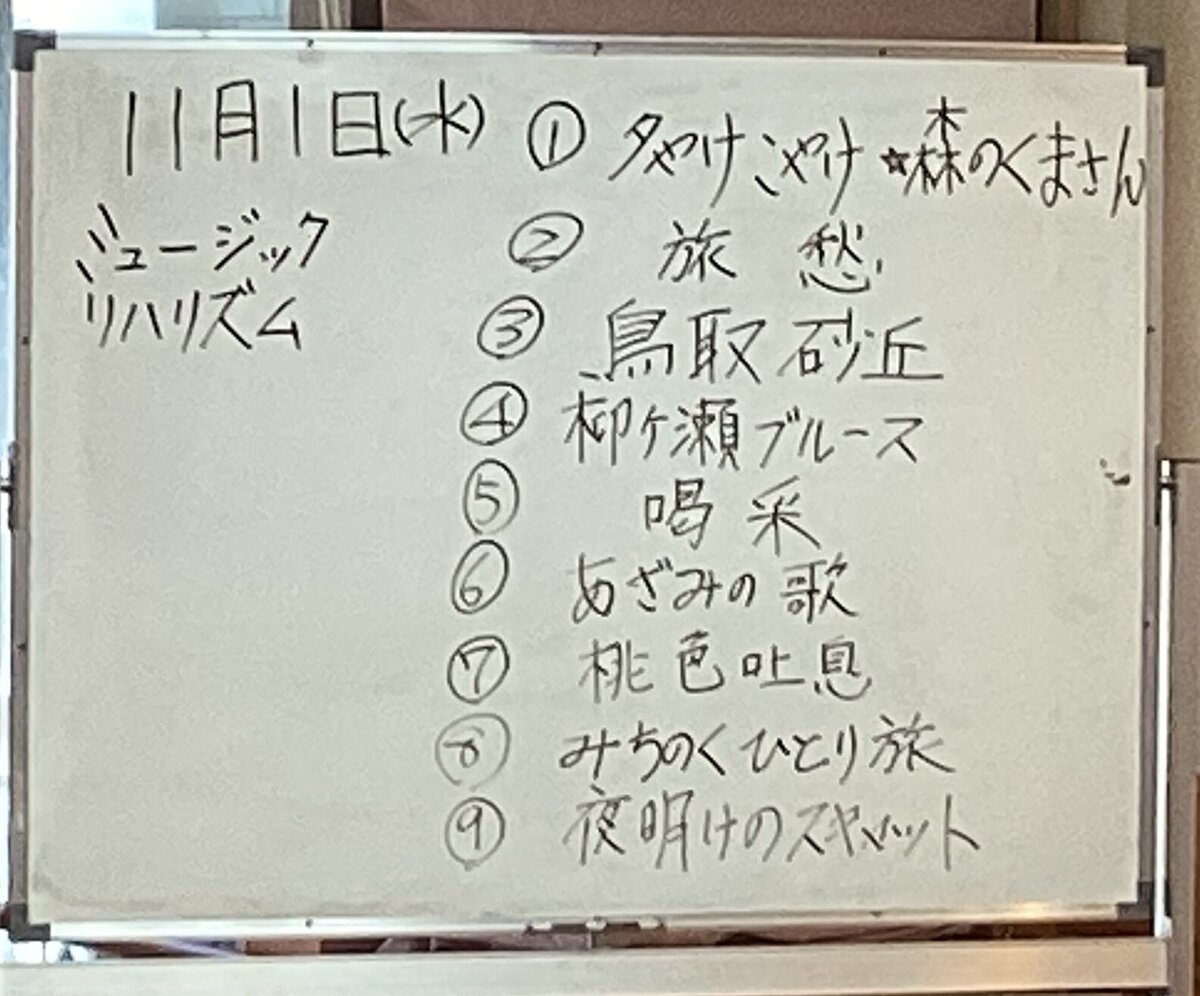 11月1日(水)
ミュージック
リハリズム
① 夕やけこやけ ☆森のくまさん
② 旅愁
③ 鳥取砂丘
④ 柳ケ瀬ブルース
⑤ 喝采
⑥ あざみの歌
⑦ 桃色吐息
⑧ みちのくひとり旅
⑨ 夜明けのスキャット